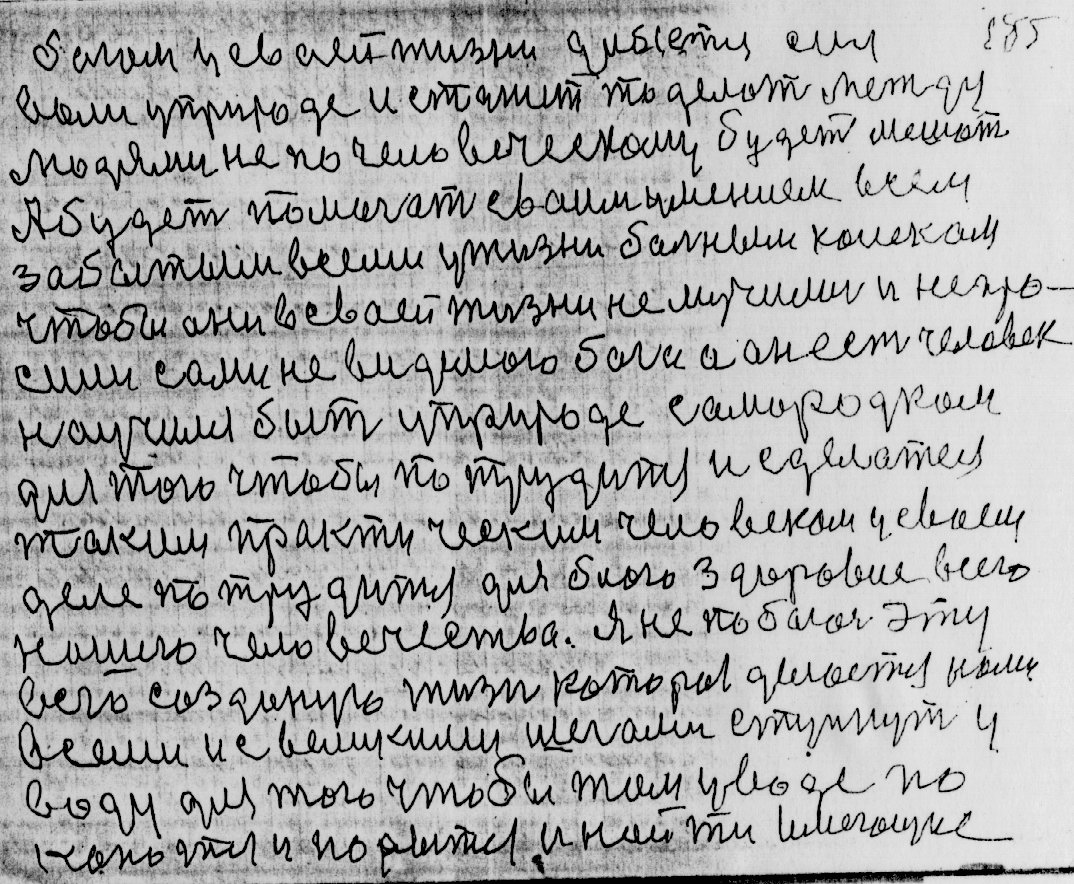 185
богом у сваей жизни дабется сил
воли у природе и станит то делат между
людями не по человеческому будет мешат
А будет помагат сваим умением всем
забытыми всеми у жизни болным колекам
чтобы они в сваей жизни не мучили и непро-
сили сами не видемого бога а он ест человек
научил быт у природе самородком
для того чтобы по трудится и сделатся
таким практическим человеком у своем
деле потрудится для блого здоровие всего
нашего человечества. Я не побоюя эту
всего созданую жизн котороя делается нами
всеми и с великими шагами ступнут у
воду для того чтобы там у воде по
капатся и порытся и найти